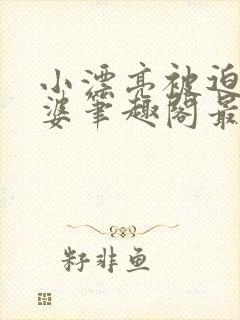 小漂亮被迫
婆笔趣阁最
籽非鱼